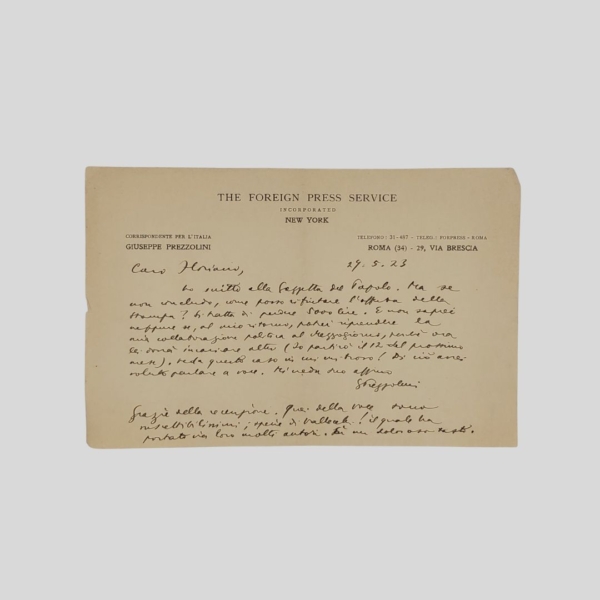 THE FOREIGN PRESS SERVICE
INCORPORATED
NEW YORK
CORRISPONDENTE PER L'ITALIA
GIUSEPPE PREZZOLINI
TELEFONO: 21-407 - TELEG.: FORPRESS - ROMA
ROMA (34) - 29, VIA BRESCIA
Caro Floriano,
29.5.23
ho scritto alla Gazzetta del Popolo. Ma se
non concludo, come posso rifiutare l'offerta della
Stampa? Si tratta di perdere 5000 lire. E non saprei
neppure se, al mio ritorno, potrei riprendere la
mia collaborazione politica al Mezzogiorno, perché ora
ne dovrei incaricare altri (Io partirò il 12 del prossimo
mese). Veda questo caso in cui mi trovo! Di ciò avrei
voluto parlare a voce. Mi creda suo affmo
GPrezzolini
Grazie della recensione. Quei della Voce sono
suscettibilissimi; specie di Vallecchi! il quale ha
portato via loro molti autori. È un doloroso tasto.